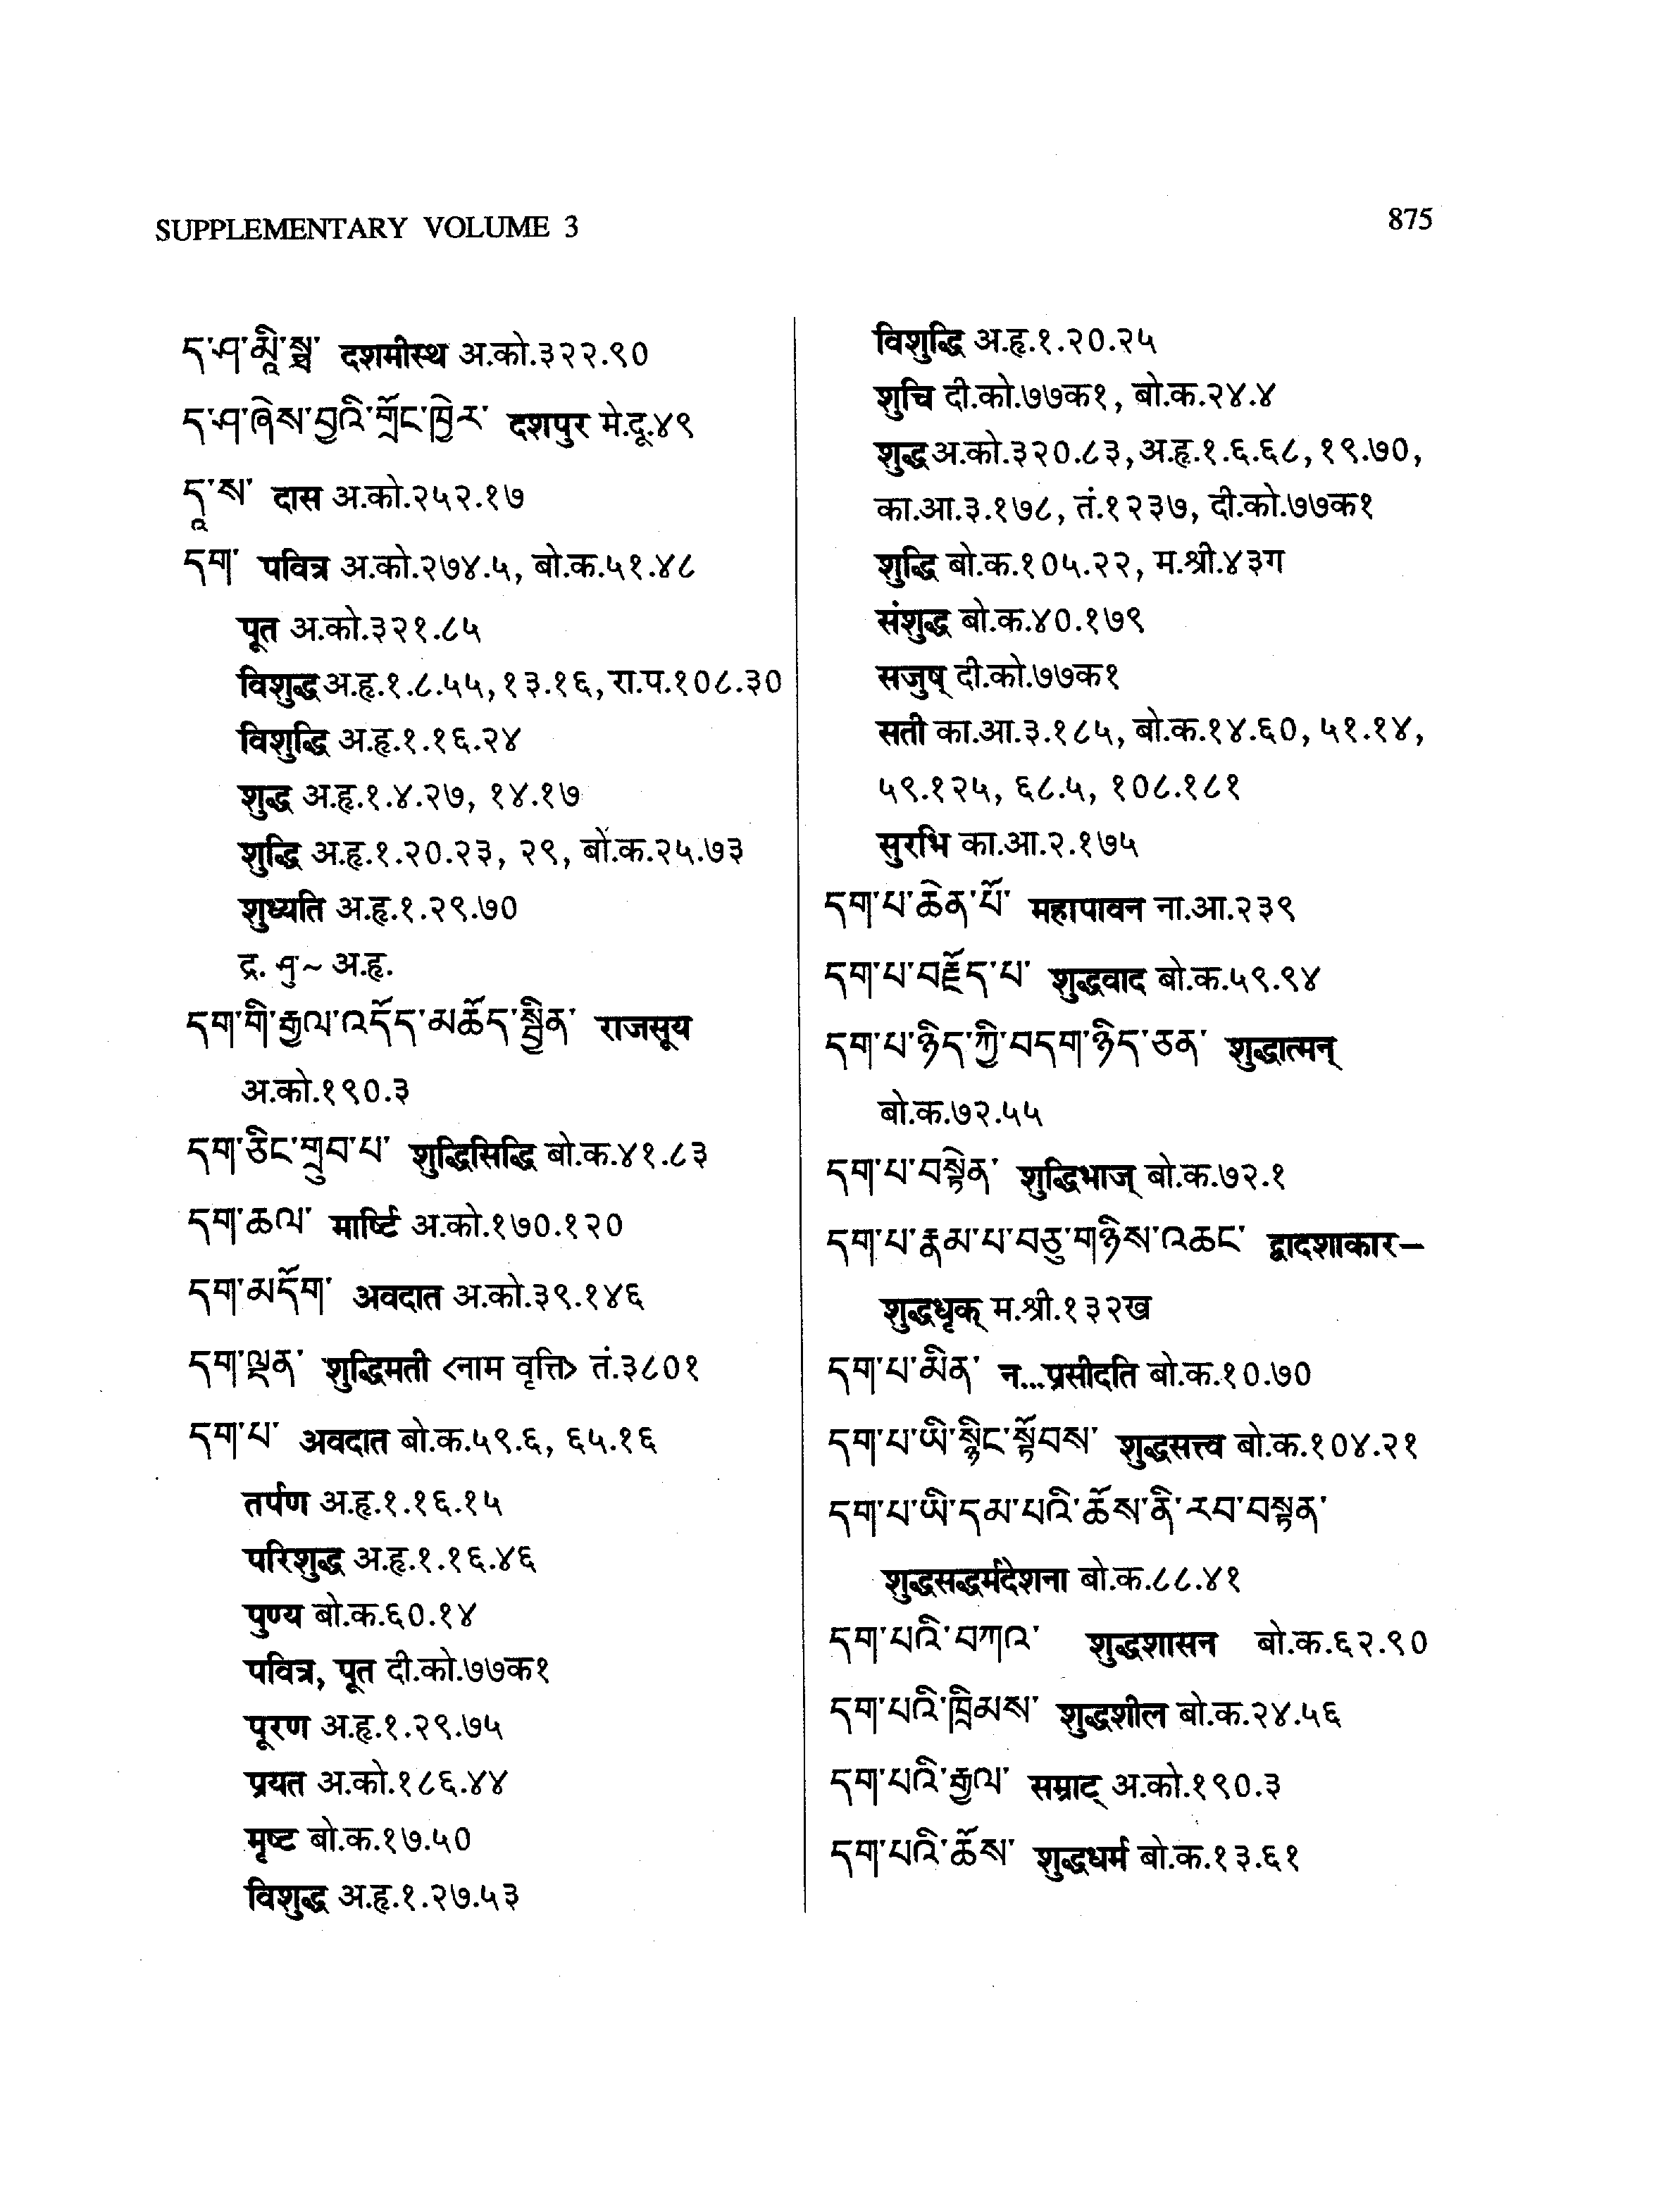 SUPPLEMENTARY VOLUME 3
875
ད་ཤ་མཱི་སྠ་ दशमीस्थ अ.को.३२२.९०
ད་ཤ་ཞེས་བྱའི་གྲོང་ཁྱེར་ दशपुर मे.दू.४९
དཱ་ས་ दास अ.को.२५२.१७
དག་ पवित्र अ.को.२७४.५, बो.क.५१.४८
पूत अ.को.३२१.८५
विशुद्ध अ.हृ.१.८.५५, १३.१६, रा.प.१०८.३०
विशुद्धि अ.हृ.१.१६.२४
शुद्ध अ.हृ.१.४.२७, १४.१७
शुद्धि अ.हृ.१.२०.२३, २९, बो.क.२५.७३
शुध्यति अ.हृ.१.२९.७०
द्र. ཤུ~ अ.हृ.
དག་གི་རྒྱལ་འདོད་མཆོད་སྦྱིན་ राजसूय
अ.को.१९०.३
དག་ཅིང་གྲུབ་པ་ शुद्धिसिद्धि बो.क.४१.८३
དག་ཆལ་ मार्ष्टि अ.को.१७०.१२०
དག་མདོག་ अवदात अ.को.३९.१४६
དག་ལྡན་ शुद्धिमती <नाम वृत्ति> तं.३८०१
དག་པ་ अवदात बो.क.५९.६, ६५.१६
तर्पण अ.हृ.१.१६.१५
परिशुद्ध अ.हृ.१.१६.४६
पुण्य बो.क.६०.१४
पवित्र, पूत दी.को.७७क१
पूरण अ.हृ.१.२९.७५
प्रयत अ.को.१८६.४४
मृष्ट बो.क.१७.५०
विशुद्ध अ.हृ.१.२७.५३
विशुद्धि अ.हृ.१.२०.२५
शुचि दी.को.७७क१, बो.क.२४.४
शुद्ध अ.को.३२०.८३, अ.हृ.१.६.६८, १९.७०,
का.आ.३.१७८, तं.१२३७, दी.को.७७क१
शुद्धि बो.क.१०५.२२, म.श्री.४३ग
संशुद्ध बो.क.४०.१७९
सजुष् दी.को.७७क१
सती का.आ.३.१८५, बो.क.१४.६०, ५१.१४,
५९.१२५, ६८.५, १०८.१८१
सुरभि का.आ.२.१७५
དག་པ་ཆེན་པོ་ महापावन ना.आ.२३९
དག་པ་བརྗོད་པ་ शुद्धवाद बो.क.५९.९४
དག་པ་ཉིད་ཀྱི་བདག་ཉིད་ཅན་ शुद्धात्मन्
बो.क.७२.५५
དག་པ་བསྟེན་ शुद्धिभाज् बो.क.७२.१
དག་པ་རྣམ་པ་བཅུ་གཉིས་འཆང་ द्वादशाकार–
शुद्धधृक् म.श्री.१३२ख
དག་པ་མིན་ न...प्रसीदति बो.क.१०.७०
དག་པ་ཡི་སྙིང་སྟོབས་ शुद्धसत्त्व बो.क.१०४.२१
དག་པ་ཡི་དམ་པའི་ཆོས་ནི་རབ་བསྟན་
शुद्धसद्धर्मदेशना बो.क.८८.४१
དག་པའི་བཀའ་ शुद्धशासन बो.क.६२.९०
དག་པའི་ཁྲིམས་ शुद्धशील बो.क.२४.५६
དག་པའི་རྒྱལ་ सम्राट् अ.को.१९०.३
དག་པའི་ཆོས་ शुद्धधर्म बो.क.१३.६१